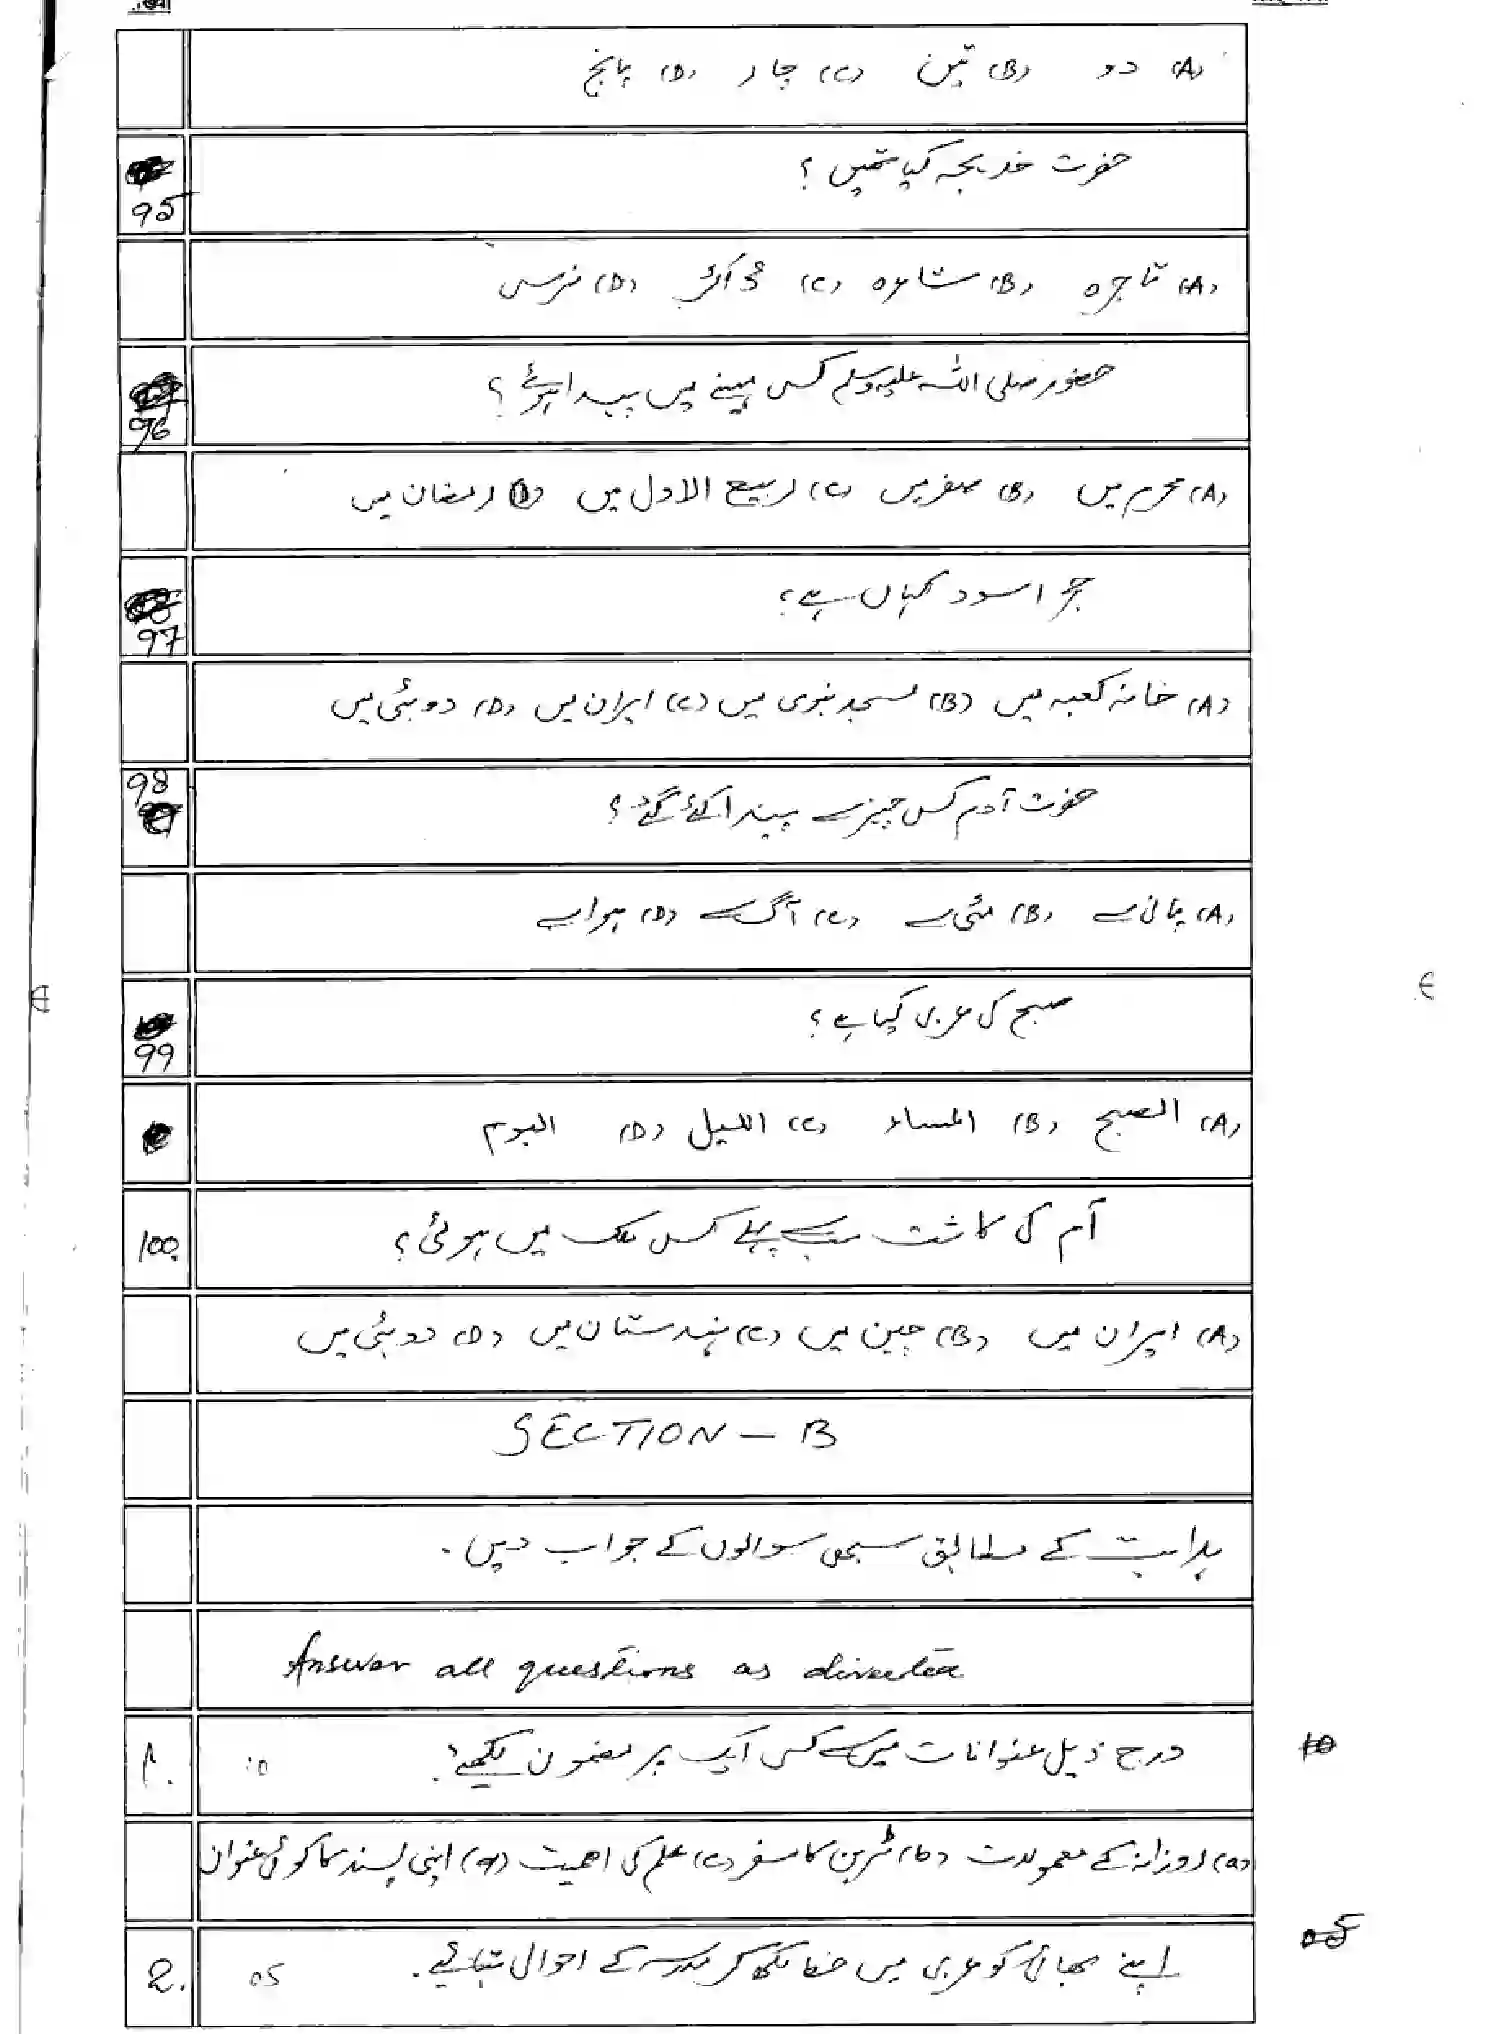 (A) دو (B) تین (C) چار (D) پانچ
95 حضرت خدیجہ کیا تھیں ؟
(A) تاجرہ (B) شاعرہ (C) ڈاکٹر (D) نرس
96 حضور صلی اللہ علیہ وسلم کس مہینے میں پیدا ہوئے ؟
(A) محرم میں (B) صفر میں (C) ربیع الاول میں (D) رمضان میں
97 حجر اسود کہاں ہے ؟
(A) خانہ کعبہ میں (B) مسجد نبوی میں (C) ایران میں (D) دوبئی میں
98 حضرت آدم کس چیز سے پیدا کئے گئے ؟
(A) پانی سے (B) مٹی سے (C) آگ سے (D) ہوا سے
99 صبح کی عربی کیا ہے ؟
(A) الصبح (B) المساء (C) اللیل (D) الیوم
100. آم کی کاشت سب سے پہلے کس ملک میں ہوئی ؟
(A) ایران میں (B) چین میں (C) ہندستان میں (D) دوبئی میں
SECTION - B
ہدایت کے مطابق سبھی سوالوں کے جواب دیں .
Answer all questions as directed
1. درج ذیل عنوانات میں سے کسی ایک پر مضمون لکھیے ؟ 10
(a) روزانہ کے معمولات (b) ٹرین کا سفر (c) علم کی اھمیت (d) اپنی پسند کا کوئی عنوان
2. اپنے بھائی کو عربی میں خط لکھ کر مدرسہ کے احوال بتائیے . 05